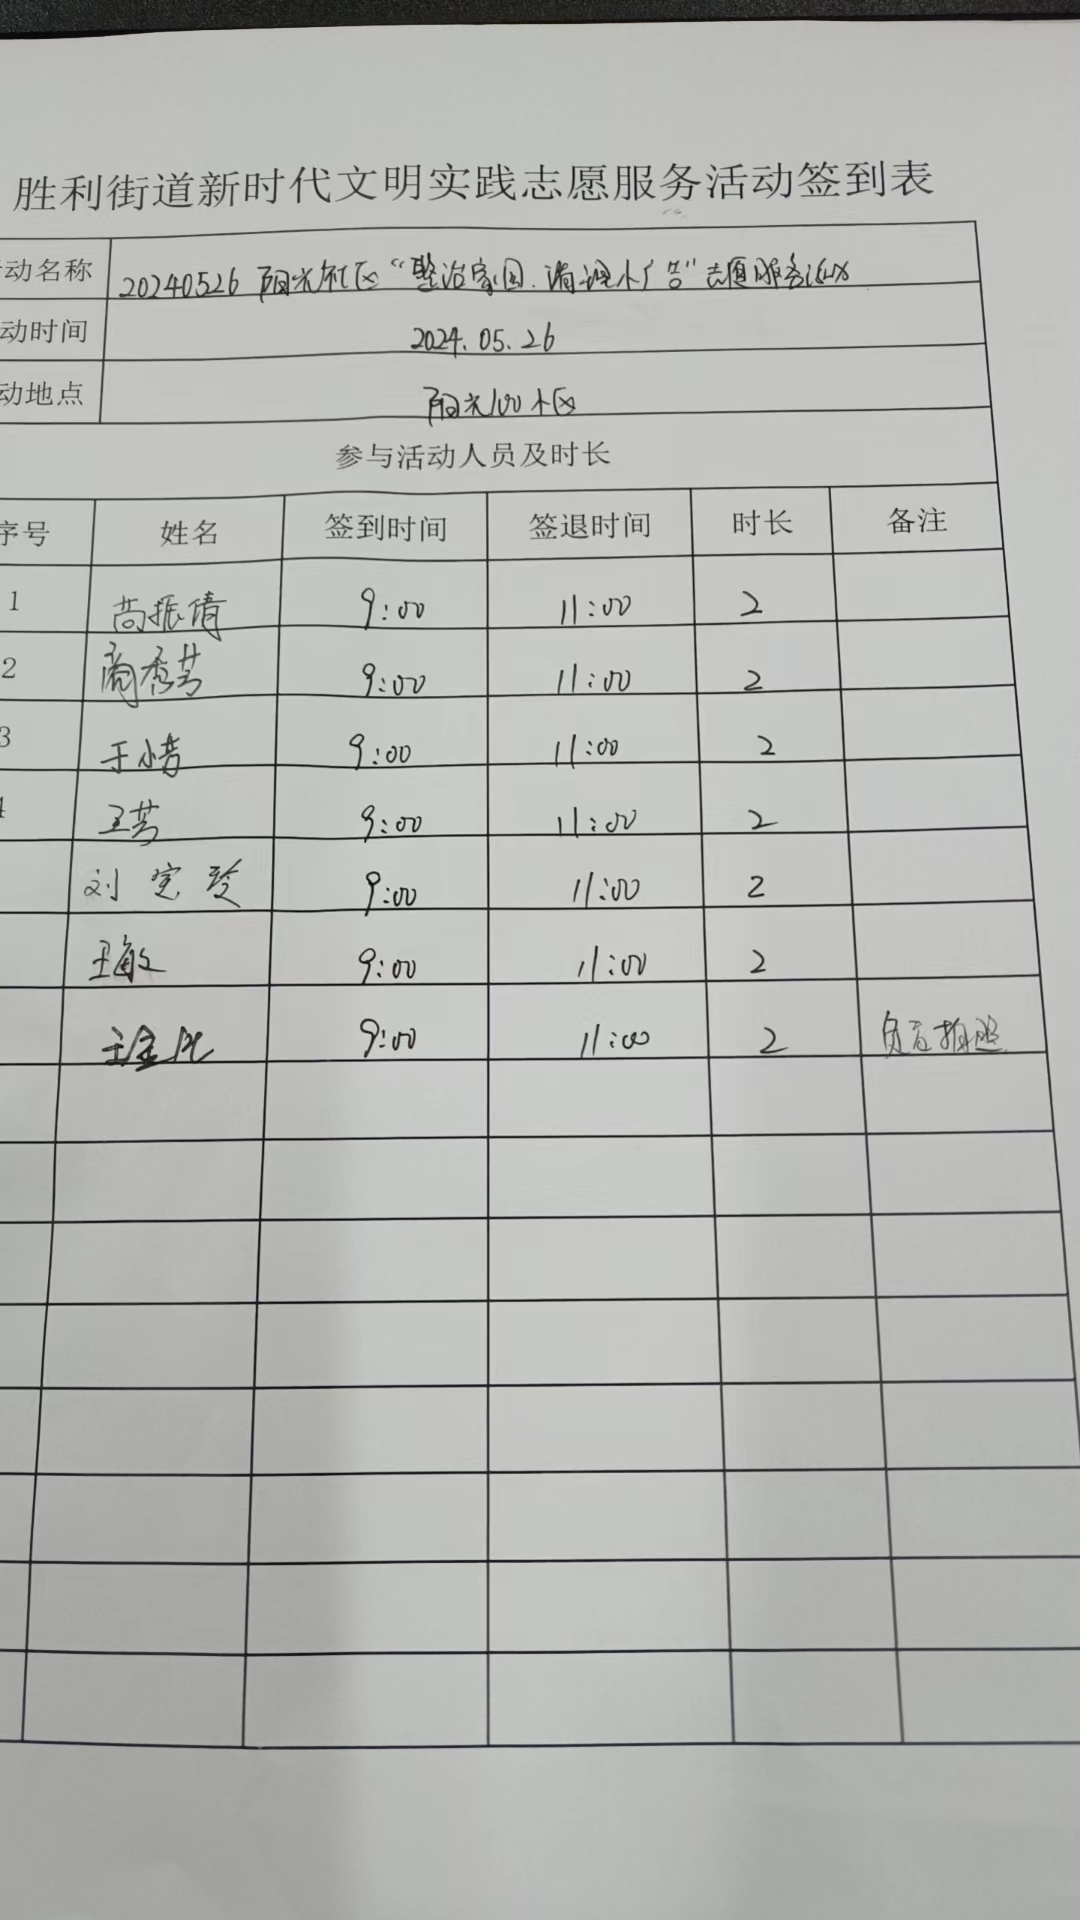 胜利街道新时代文明实践志愿服务活动签到表
动名称 20240526 阳光社区“整治家园.清理小广告”志愿服务活动
动时间 2024.05.26
动地点 阳光100小区
参与活动人员及时长
序号 姓名 签到时间 签退时间 时长 备注
1 苘振倩 9:00 11:00 2
2 阎秀芳 9:00 11:00 2
3 于小芳 9:00 11:00 2
4 王芳 9:00 11:00 2
刘宪玲 9:00 11:00 2
王敏 9:00 11:00 2
王金 9:00 11:00 2 负责拍照